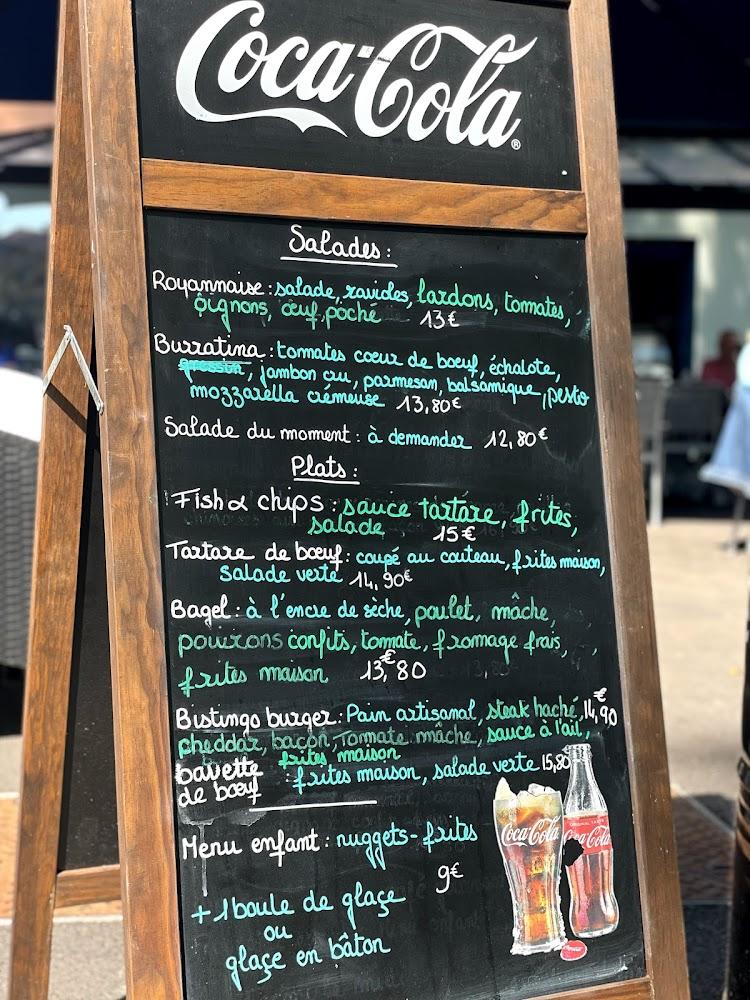 Coca-Cola®
Salades :
Royannaise : salade, ravioles, lardons, tomates,
oignons, œuf poché 13€
Burratina : tomates coeur de boeuf, échalote,
, jambon cru, parmesan, balsamique, pesto
mozzarella crémeuse 13,80€
Salade du moment : à demander 12,80€
Plats :
Fish & chips : sauce tartare, frites,
salade 15€
Tartare de bœuf : coupé au couteau, frites maison,
salade verte 14,90€
Bagel : à l'encre de sèche, poulet, mâche,
pouvrons confits, tomate, fromage frais,
frites maison 13,€80
Bistingo burger : Pain artisanal, steak haché, 14,€90
cheddar, bacon, Tomate mâche, sauce à l'ail,
frites maison
bavette
de bœuf : frites maison, salade verte 15,80€
Menu enfant : nuggets - frites
9€
+ 1 boule de glaçe
ou
glaçe en bâton
Coca-Cola
Coca-Cola